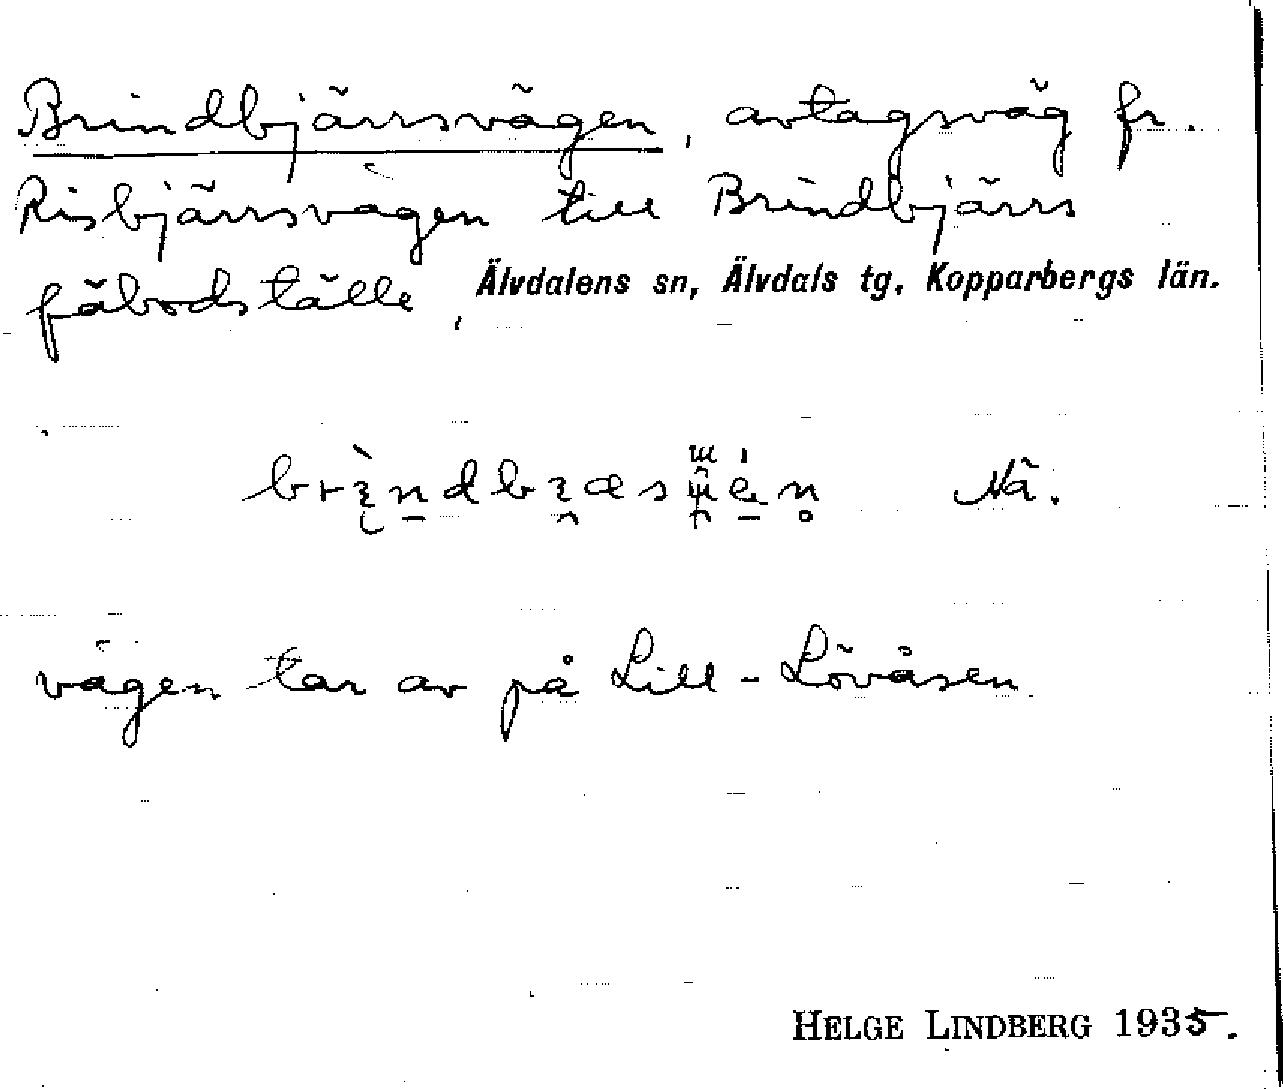 Brindbjärrsvägen, avtagsväg fr.
Risbjärrsvägen till Brindbjärrs
fäbodställe, Älvdalens sn, Älvdals tg, Kopparbergs län.
Nä.
vägen tar av på Lill-Lövåsen
HELGE LINDBERG 1935.